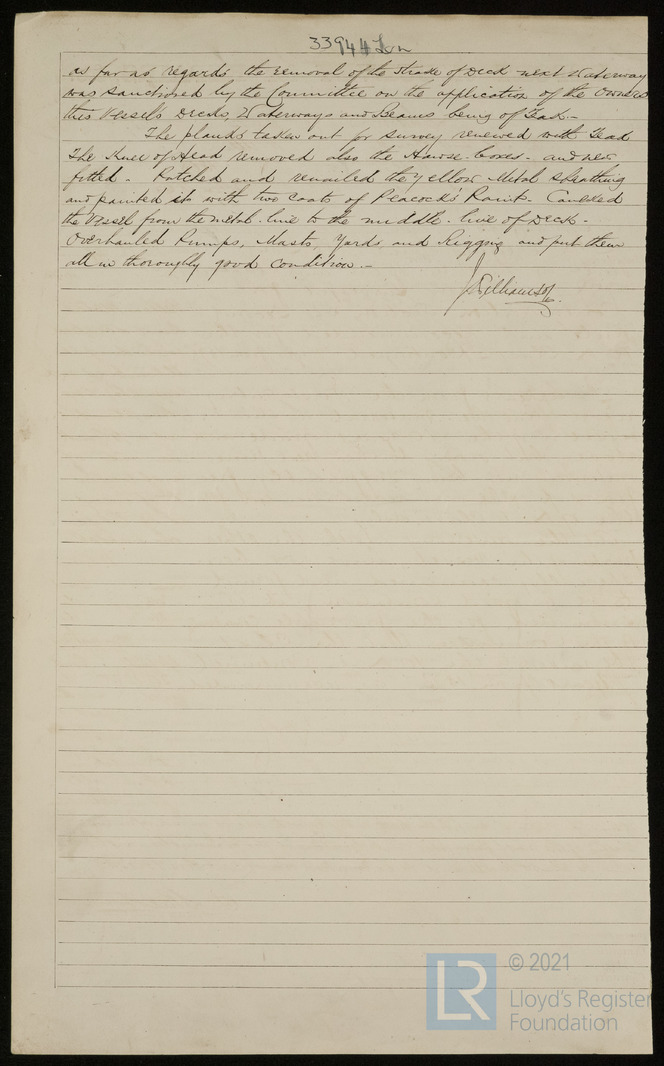 33944 Lon
as far as regards the removal of the strake of Deck next Waterway
was sanctioned by the Committee on the application of the Owners
this Vessel's Decks, Waterways and Beams being of Teak.-
The planks taken out for survey renewed with Teak
The Knee of Head removed also the Hawse-boxes- and new
fitted - Patched and renailed the yellow Metal sheathing
and painted it with two coats of Peacock's Paint. Caulked
the Vessel from the metal line to the middle-line of Deck -
Overhauled Pumps, Masts, Yards, and Rigging and put them
all in thoroughly good condition.-
J. Williamson
LR
© 2021
Lloyd's Register
Foundation